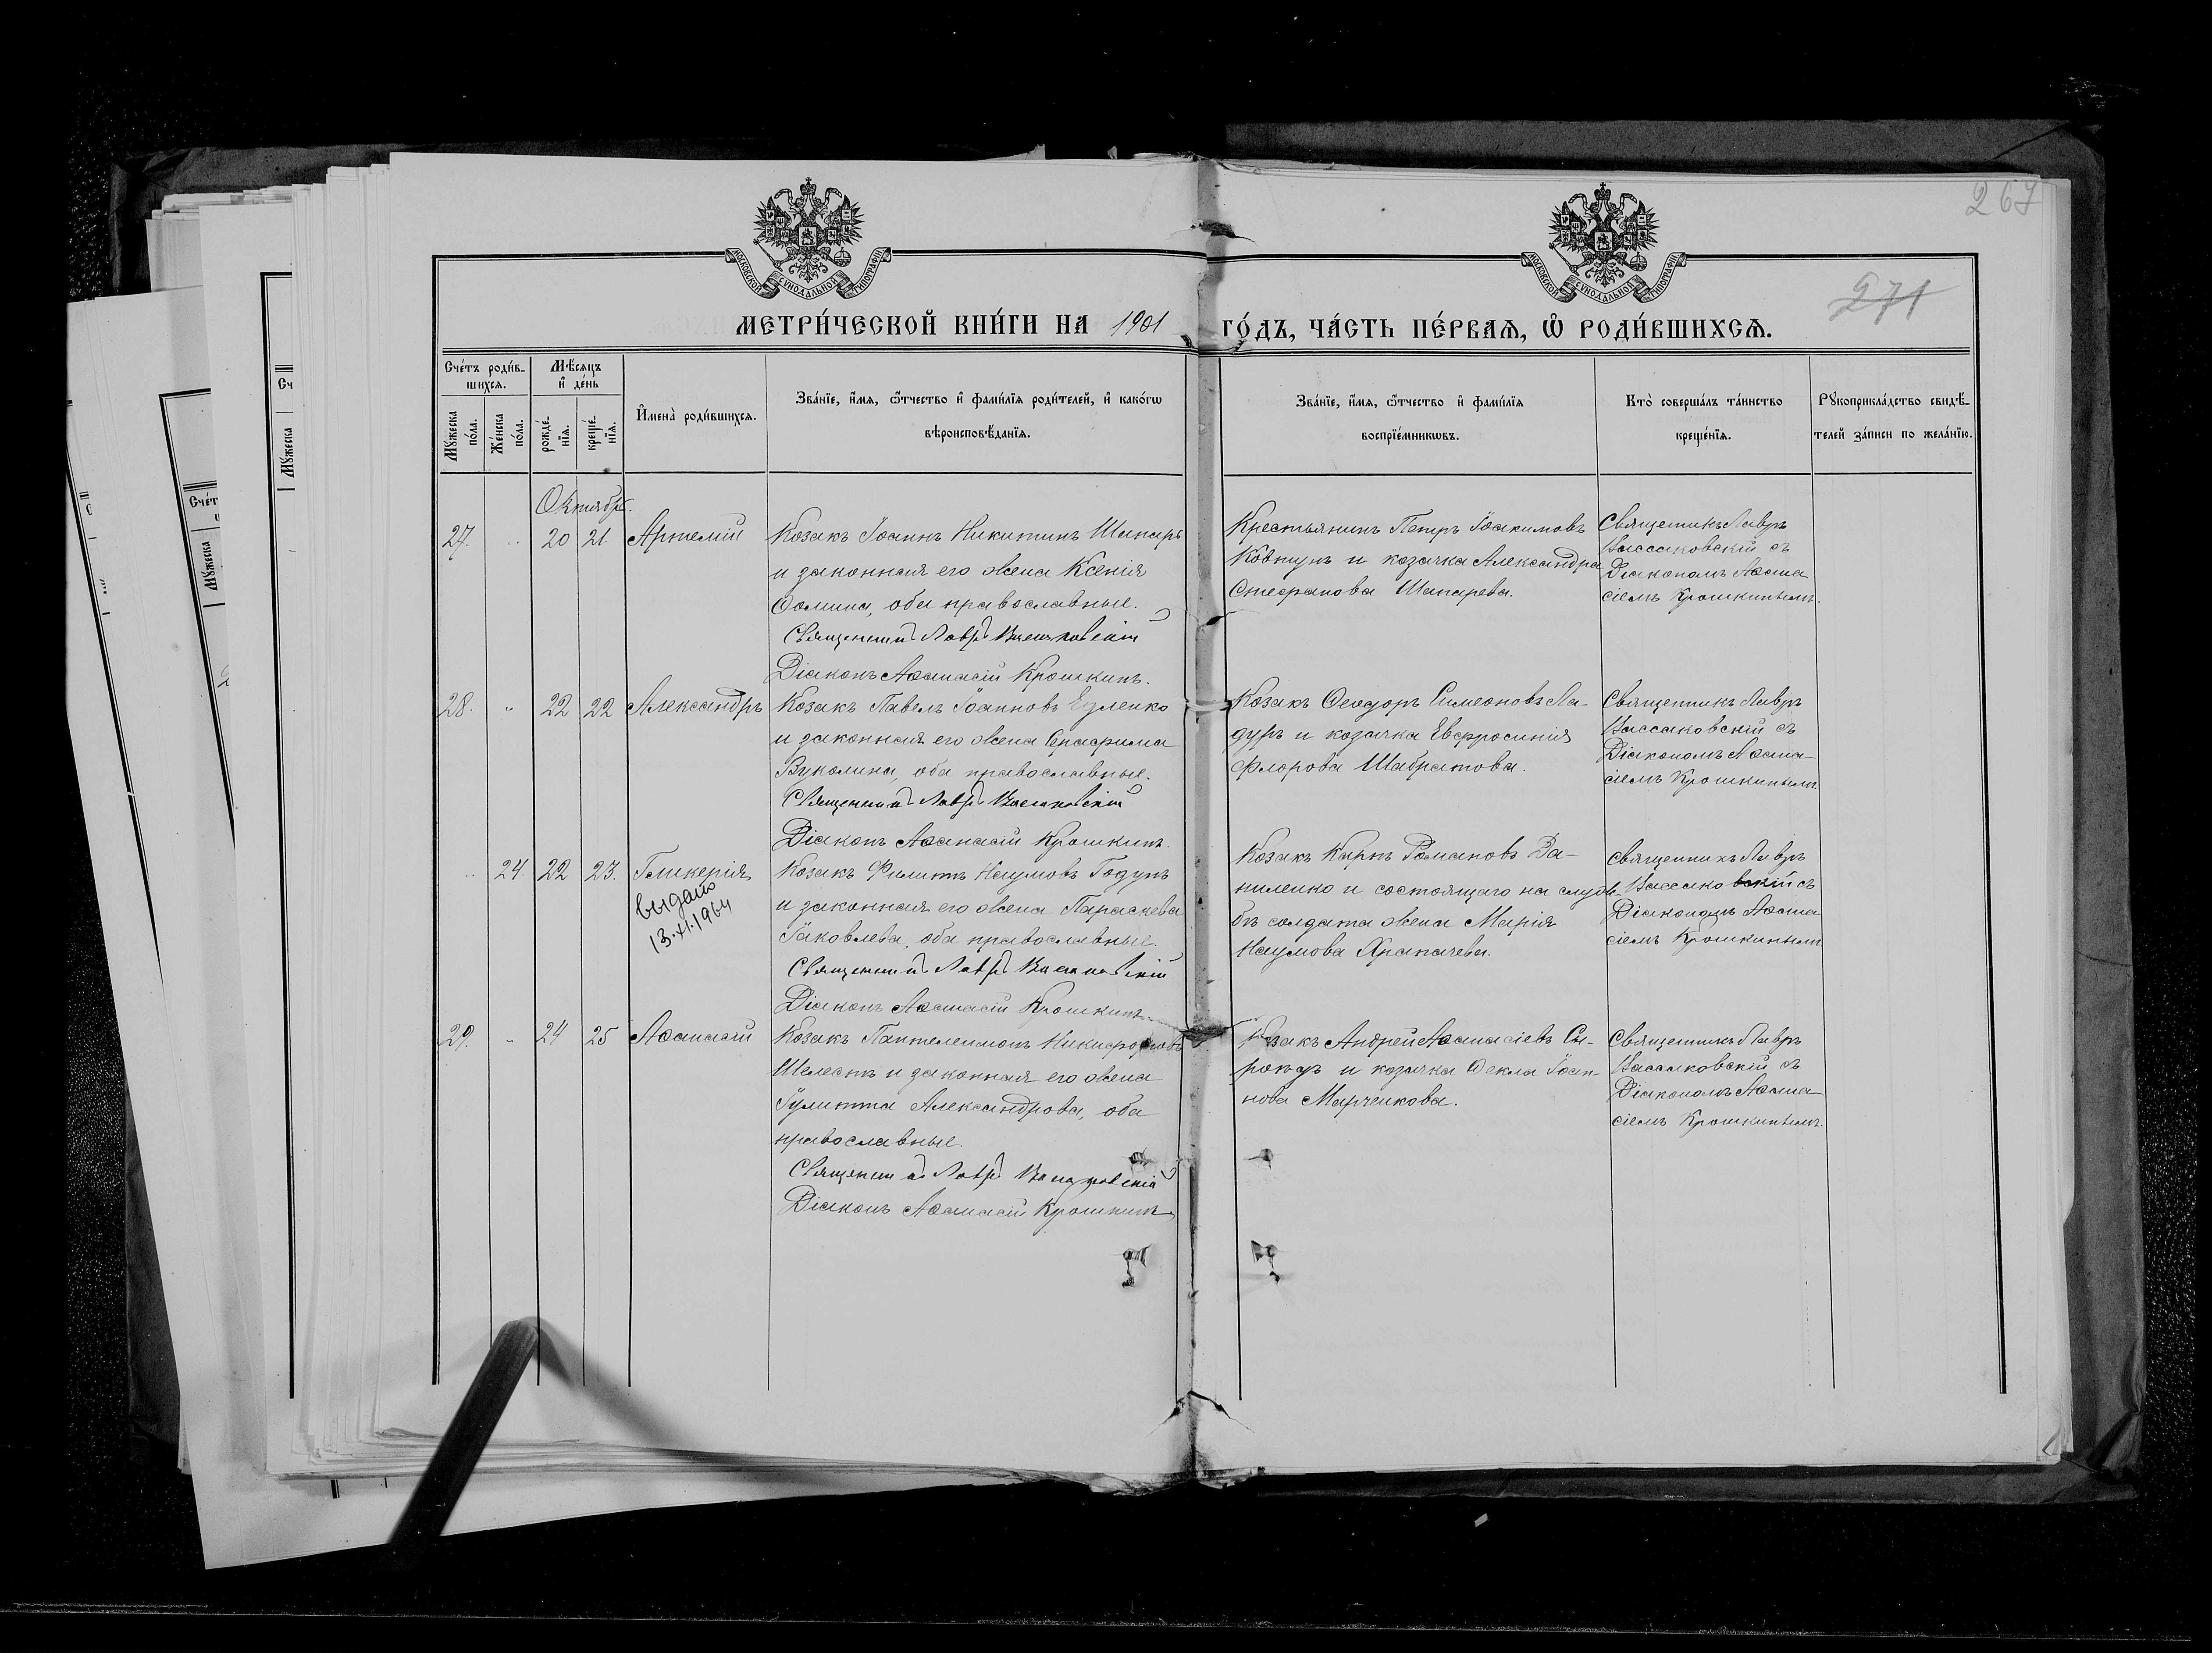 267
271
МОСКОВСКОЙ СѴНОДАЛЬНОЙ ТИПОГРАФІИ
МОСКОВСКОЙ СѴНОДАЛЬНОЙ ТИПОГРАФІИ
МЕТРИ́ЧЕСКОЙ КНИ́ГИ НА 1901 ГО́ДЪ, ЧА́СТЬ ПЕ́РВАѦ, Ѿ РОДИ́ВШИХСѦ.
Сче́тъ роди́в-
шихсѧ.
Мѣ́сѧцъ
и҆ де́нь
Мꙋ́жеска по́ла.
Же́нска по́ла.
рожде́-нїѧ.
креще́-нїѧ.
И҆мена̀ роди́вшихсѧ.
Зва́нїе, и҆́мѧ, ѻ҆́тчество и҆ фами́лїѧ роди́телей, и҆ како́гѡ
вѣроисповѣ́данїѧ.
Зва́нїе, и҆́мѧ, ѻ҆́тчество и҆ фами́лїѧ
воспрїе́мникѡвъ.
Кто̀ соверша́лъ та́инство
креще́нїѧ.
Рꙋкоприкла́дство свидѣ́-
телей за́писи по жела́нїю.
Октябрь.
27. 20 21. Артемій
Козакъ Іоаннъ Никитинъ Шапаръ
и законная его жена Ксенія
Ѳомина, оба православные.
Священникъ Лавръ Вассаковскій
Діаконъ Аѳанасій Крошкинъ.
Крестьянинъ Петръ Іоакимовъ
Ковтунъ и козачка Александра
Стефанова Шапарева.
Священникъ Лавръ
Вассаковскій съ
Діакономъ Аѳана
сіемъ Крошкинымъ.
28. 22 22 Александръ
Козакъ Павелъ Іоанновъ
и законная его жена Серафима
Вуколина, оба православные.
Священникъ Лавръ Вассаковскій
Діаконъ Аѳанасій Крошкинъ.
Козакъ Ѳеодоръ Симеоновъ Ла-
дуръ и козачка Евфросинія
Флорова Шабратова.
Священникъ Лавръ
Вассаковскій съ
Діакономъ Аѳана-
сіемъ Крошкинымъ
24. 22 23. Гликерія
выдано
13.XI.1964
Козакъ Филиппъ Наумовъ Годунъ
и законная его жена Параскева
Іаковлева, оба православные.
Священникъ Лавръ Вассаковскій
Діаконъ Аѳанасій Крошкинъ
Козакъ Карпъ Романовъ Да-
ниленко и состоящаго на служ-
бѣ солдата жена Марія
Наумова Храпачева.
Священникъ Лавръ
Вассаковскій съ
Діакономъ Аѳана
сіемъ Крошкинымъ
29. 24 25 Аѳанасій
Козакъ Пантелеимонъ Никифоровъ
Шелестъ и законная его жена
Іулитта Александрова, оба
православные.
Священникъ Лавръ Вассаковскій
Діаконъ Аѳанасій Крошкинъ
Козакъ Андрей Аѳанасіевъ Сы-
и козачка Ѳекла Іоан-
нова Марченкова.
Священникъ Лавръ
Вассаковскій съ
Діакономъ Аѳана
сіемъ Крошкинымъ.